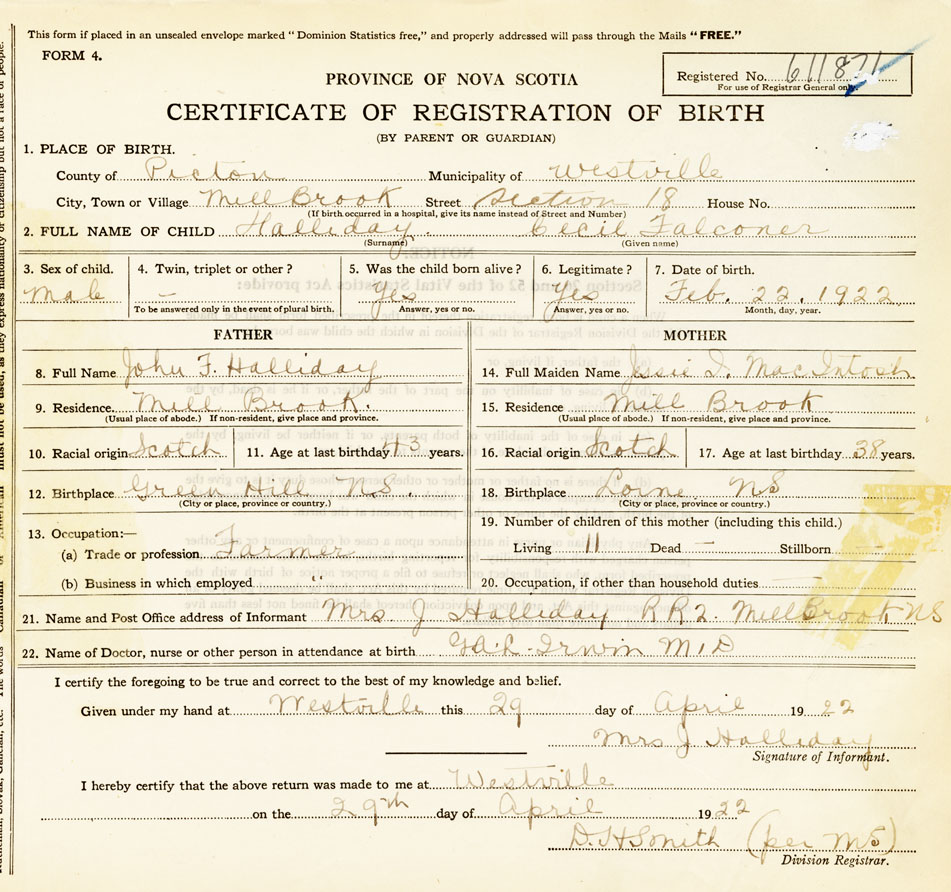 This form if placed in an unsealed envelope marked "Dominion Statistics free," and properly addressed will pass through the Mails "FREE."
FORM 4.
Registered No. 611871
For use of Registrar General only.
PROVINCE OF NOVA SCOTIA
CERTIFICATE OF REGISTRATION OF BIRTH
(BY PARENT OR GUARDIAN)
1. PLACE OF BIRTH.
County of Picton Municipality of Westville
City, Town or Village Mill Brook Street Section 18 House No.
(If birth occurred in a hospital, give its name instead of Street and Number)
2. FULL NAME OF CHILD Halliday. Cecil Falconer
(Surname) (Given name)
3. Sex of child. 4. Twin, triplet or other? 5. Was the child born alive? 6. Legitimate? 7. Date of birth.
Male – Yes Yes Feb. 22, 1922
To be answered only in the event of plural birth. Answer, yes or no. Answer, yes or no. Month, day, year.
FATHER MOTHER
8. Full Name John F. Halliday 14. Full Maiden Name Jessie I. MacIntosh
9. Residence Mill Brook. 15. Residence Mill Brook
(Usual place of abode.) If non-resident, give place and province. (Usual place of abode.) If non-resident, give place and province.
10. Racial origin Scotch 11. Age at last birthday 43 years. 16. Racial origin Scotch 17. Age at last birthday 38 years.
12. Birthplace Green Hill NS. 18. Birthplace Lorne NS
(City or place, province or country.) (City or place, province or country.)
13. Occupation:— 19. Number of children of this mother (including this child.)
(a) Trade or profession Farmer Living 11 Dead – Stillborn –
(b) Business in which employed " 20. Occupation, if other than household duties –
21. Name and Post Office address of Informant Mrs J Halliday RR2. MillBrook NS
22. Name of Doctor, nurse or other person in attendance at birth Irwin M.D
I certify the foregoing to be true and correct to the best of my knowledge and belief.
Given under my hand at Westville this 29 day of April 1922
Mrs J Halliday
Signature of Informant.
I hereby certify that the above return was made to me at Westville
on the 29th day of April 1922
D. H Smith (per MS)
Division Registrar.